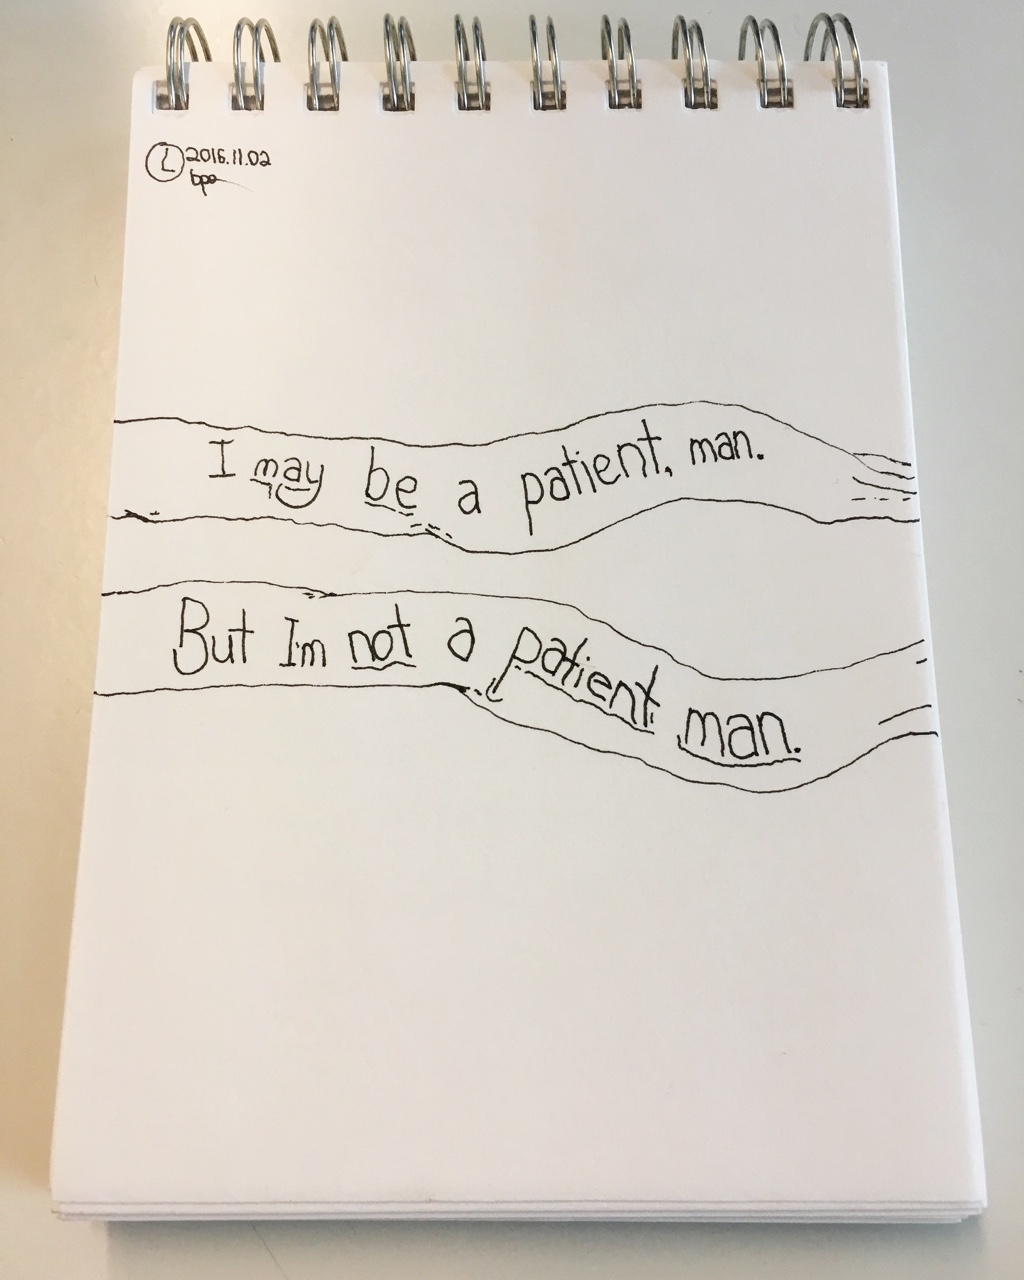 L 2016.11.02
bpo
I may be a patient, man.
But I'm not a patient man.